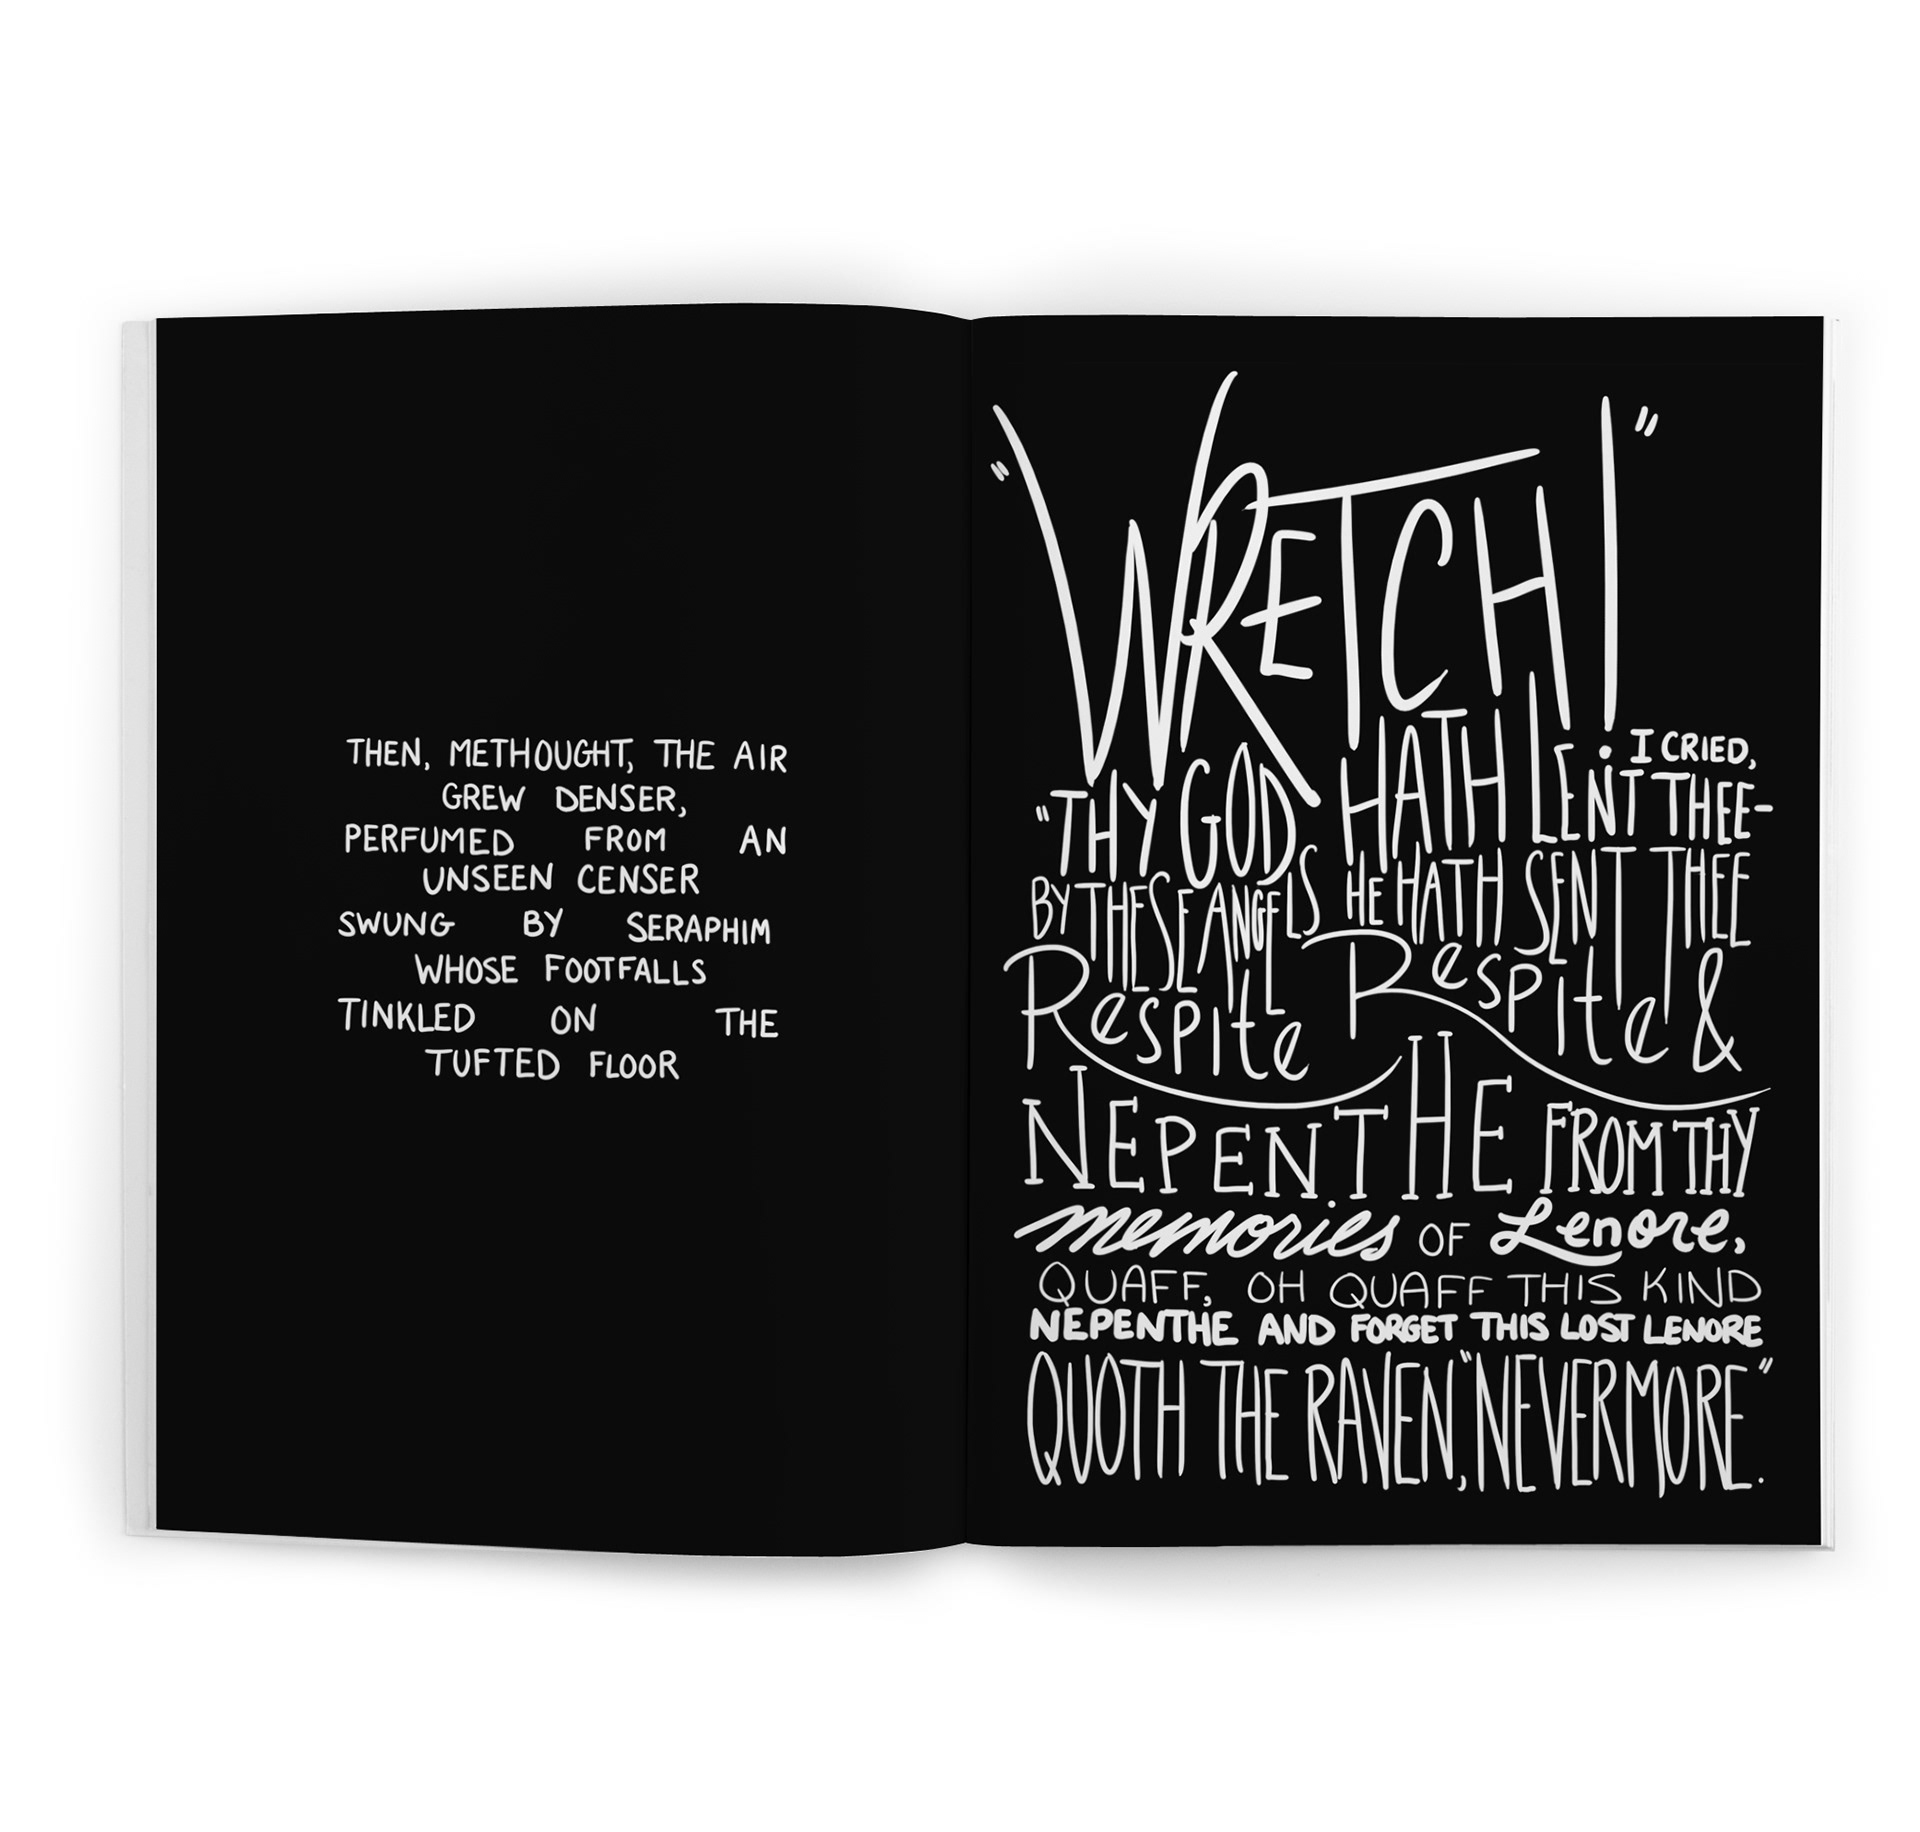 THEN, METHOUGHT, THE AIR
GREW DENSER,
PERFUMED FROM AN
UNSEEN CENSER
SWUNG BY SERAPHIM
WHOSE FOOTFALLS
TINKLED ON THE
TUFTED FLOOR
"WRETCH!"
I CRIED,
"THY GOD HATH LENT THEE-
BY THESE ANGELS HE HATH SENT THEE
Respite Respite &
NEPENTHE FROM THY
memories OF Lenore,
QUAFF, OH QUAFF THIS KIND
NEPENTHE AND FORGET THIS LOST LENORE
QUOTH THE RAVEN, "NEVERMORE."